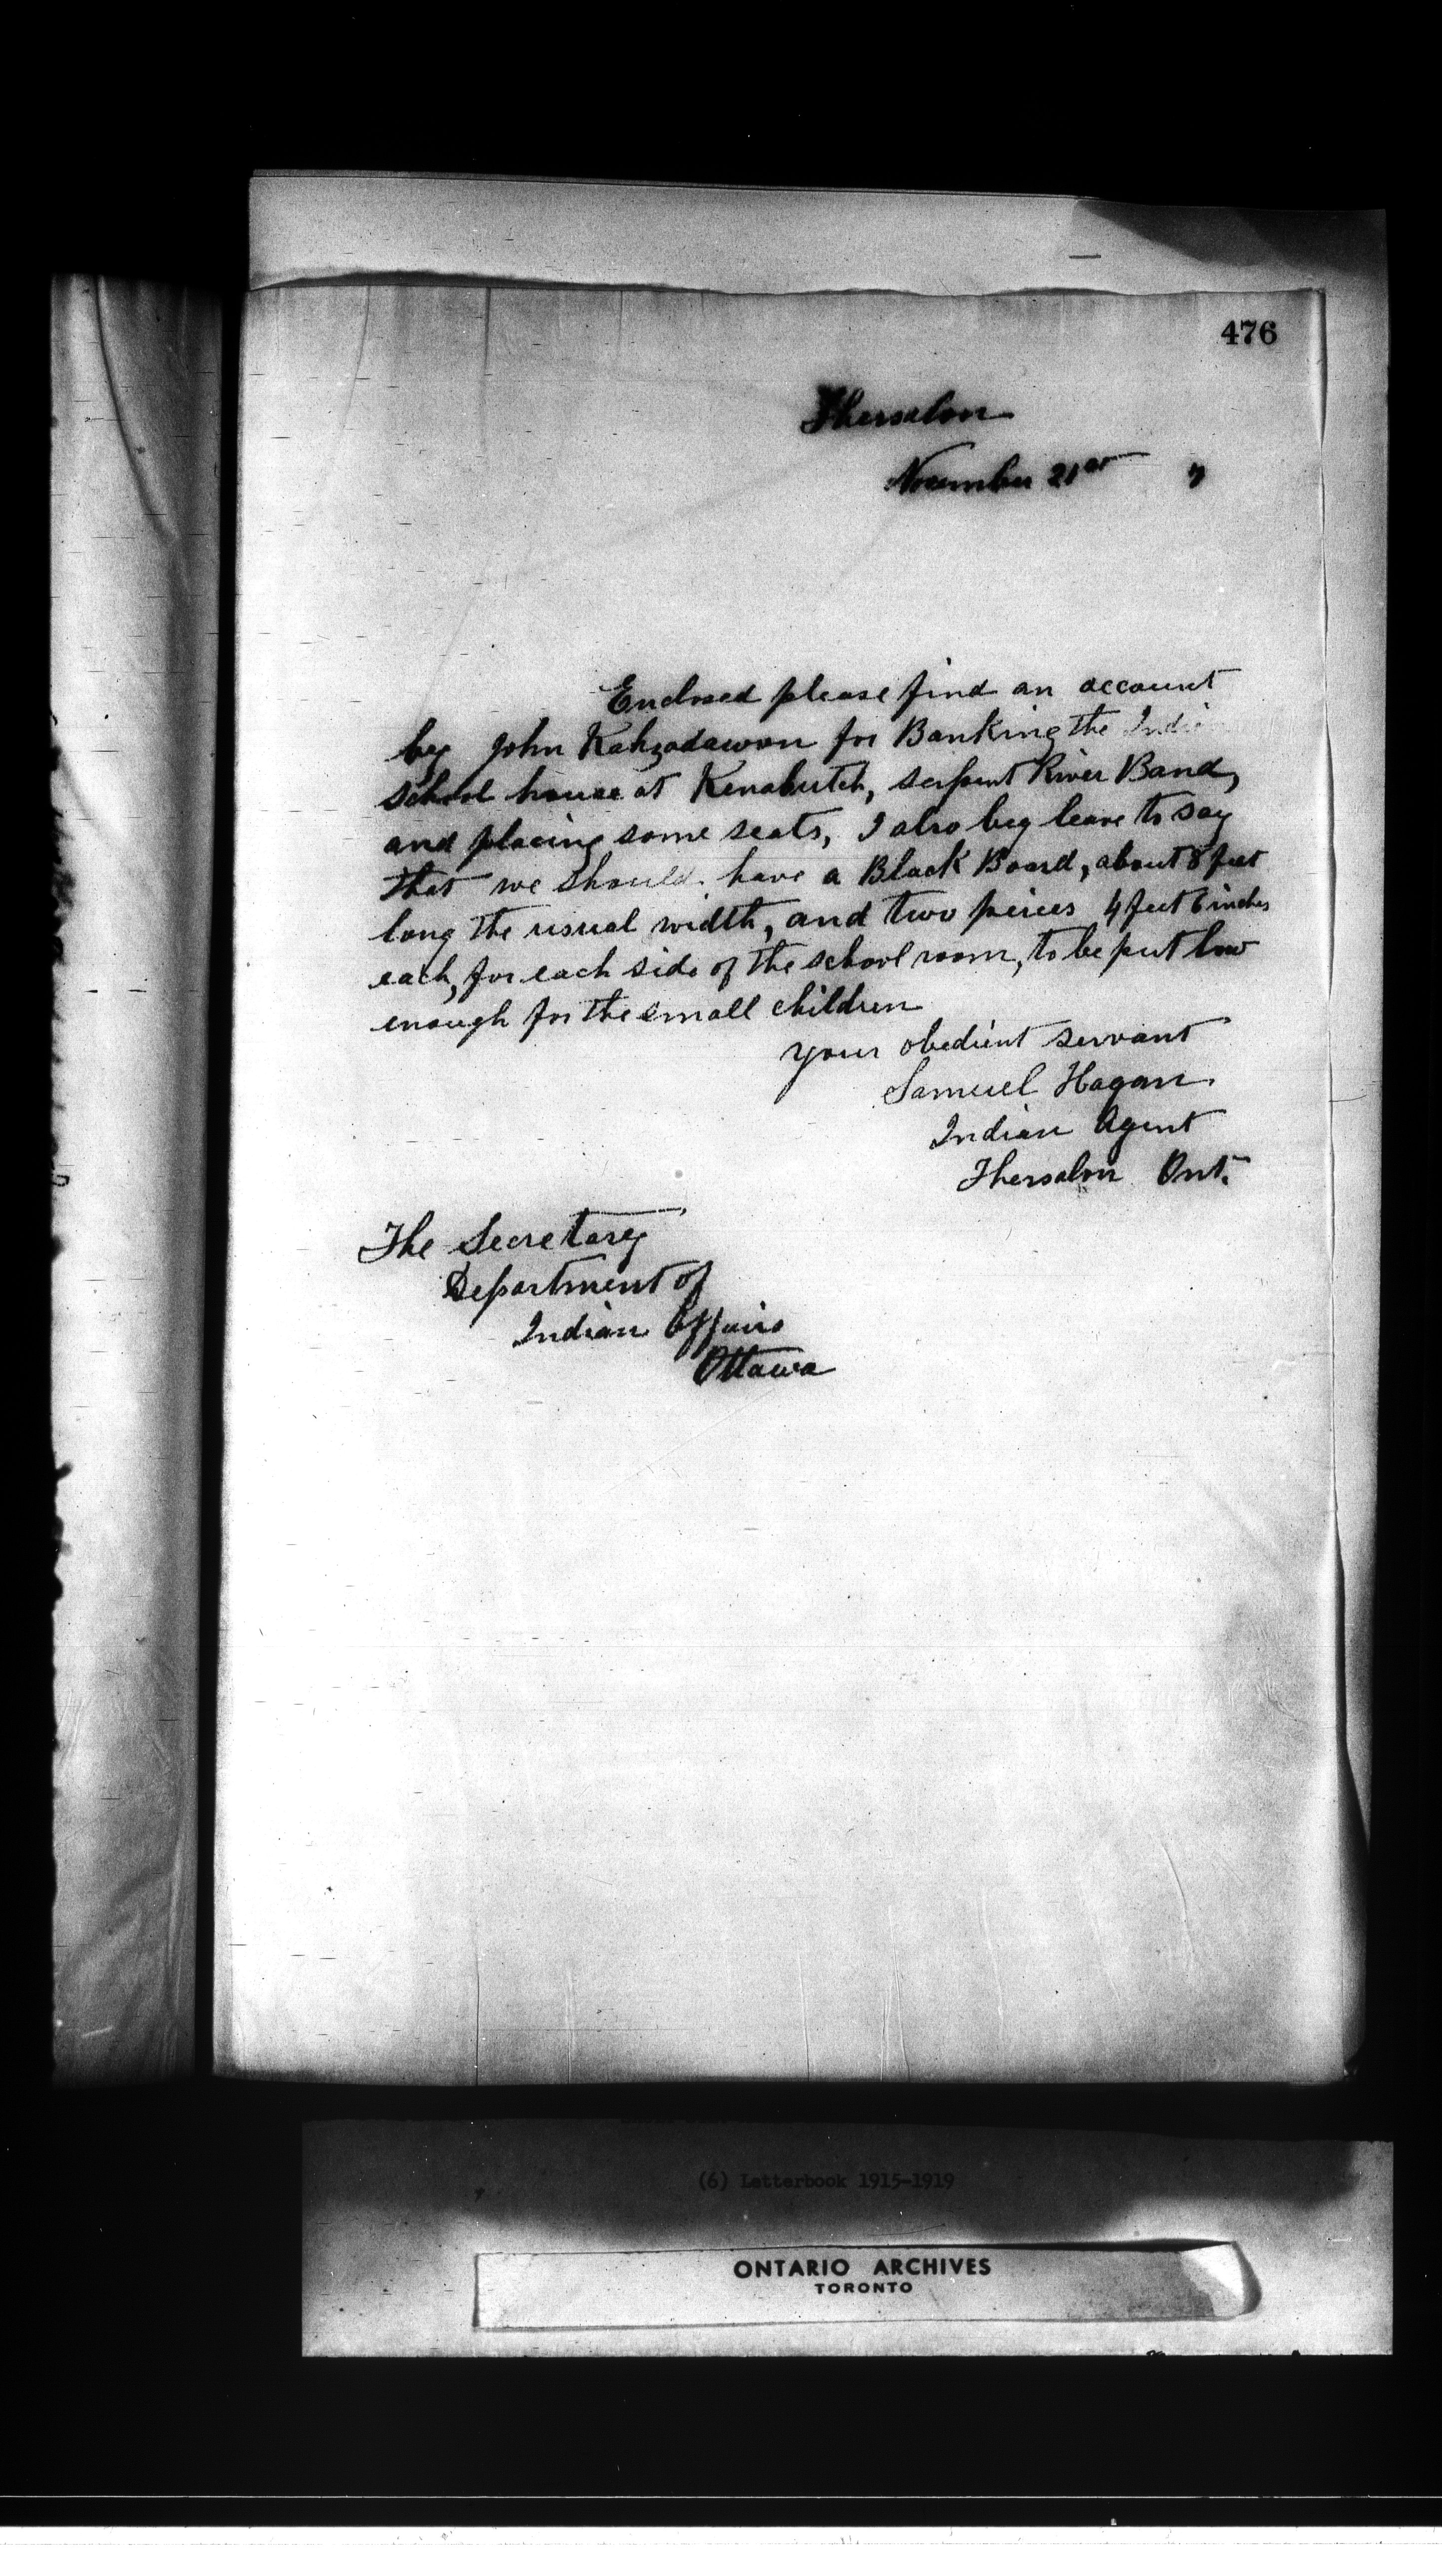 476
Thessalon
November 21st 7
Enclosed please find an account
by John Kahgodawson for Banking the Indi
school house at Kenabutch, serpent River Band,
and placing some seats, I also beg leave to say
that we should have a Black Board, about 8 feet
long the usual width, and two peices 4 feet 6 inches
each, for each side of the school room, to be put low
enough for the small children
your obedient servant
Samuel Hagan
Indian Agent
Thessalon Ont.
The Secretary
Department of
Indian Affairs
Ottawa
(6) Letterbook 1915-1919
ONTARIO ARCHIVES
TORONTO